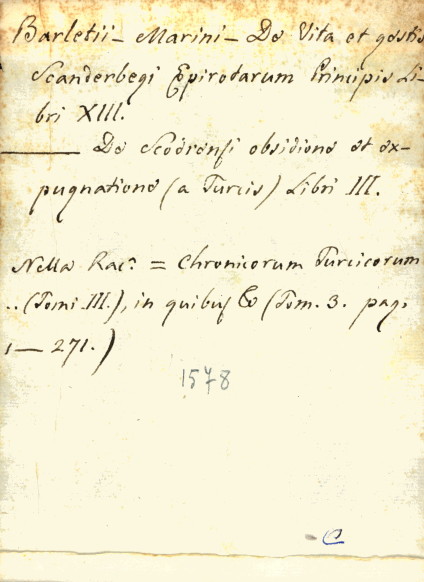 Barletii – Marini – De Vita et gestis
Scanderbegi Epirotarum Principis Li-
bri XIII.
——— De Scodrensi obsidione et ex-
pugnatione (a Turcis) Libri III.
Nella Rac.ª = Chronicorum Turcicorum
.. (Tomi III.), in quibus & (Tom. 3. pag.
1 — 271.)
1578
C